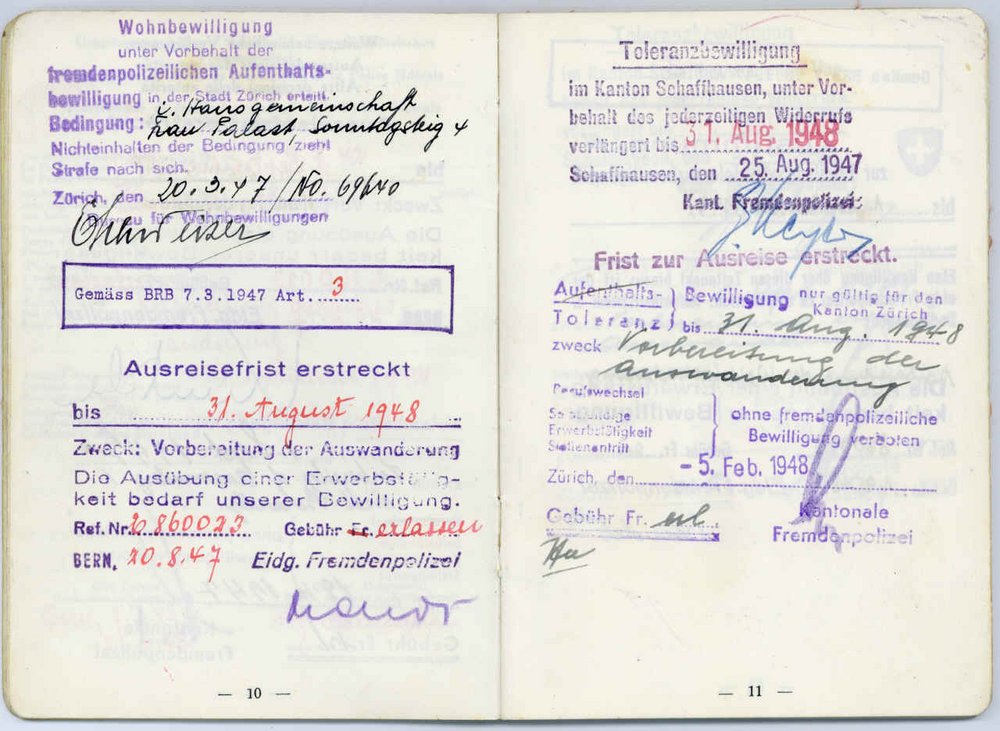 Wohnbewilligung
unter Vorbehalt der
fremdenpolizeilichen Aufenthalts-
bewilligung in der Stadt Zürich erteilt.
Bedingung: i. Hausgemeinschaft
Frau Palast, Sonntagsteig 4
Nichteinhalten der Bedingung zieht
Strafe nach sich.
Zürich, den 20.3.47 / No. 69640
Bureau für Wohnbewilligungen
Gemäss BRB 7.3.1947 Art. 3
Ausreisefrist erstreckt
bis 31. August 1948
Zweck: Vorbereitung der Auswanderung
Die Ausübung einer Erwerbstätig-
keit bedarf unserer Bewilligung.
Ref. Nr. 860023 Gebühr Fr. erlassen
BERN, 20.8.47 Eidg. Fremdenpolizei
— 10 —
Toleranzbewilligung
im Kanton Schaffhausen, unter Vor-
behalt des jederzeitigen Widerrufs
verlängert bis 31. Aug. 1948
Schaffhausen, den 25. Aug. 1947
Kant. Fremdenpolizei:
Frist zur Ausreise erstreckt.
Aufenthalts- } Bewilligung nur gültig für den
Kanton Zürich
Toleranz } bis 31. Aug. 1948
zweck Vorbereitung der
Auswanderung
Berufswechsel
Selbständige } ohne fremdenpolizeiliche
Erwerbstätigkeit Bewilligung verboten
Stellenantritt
Zürich, den -5. Feb. 1948
Gebühr Fr. erl. Kantonale
Fremdenpolizei
— 11 —